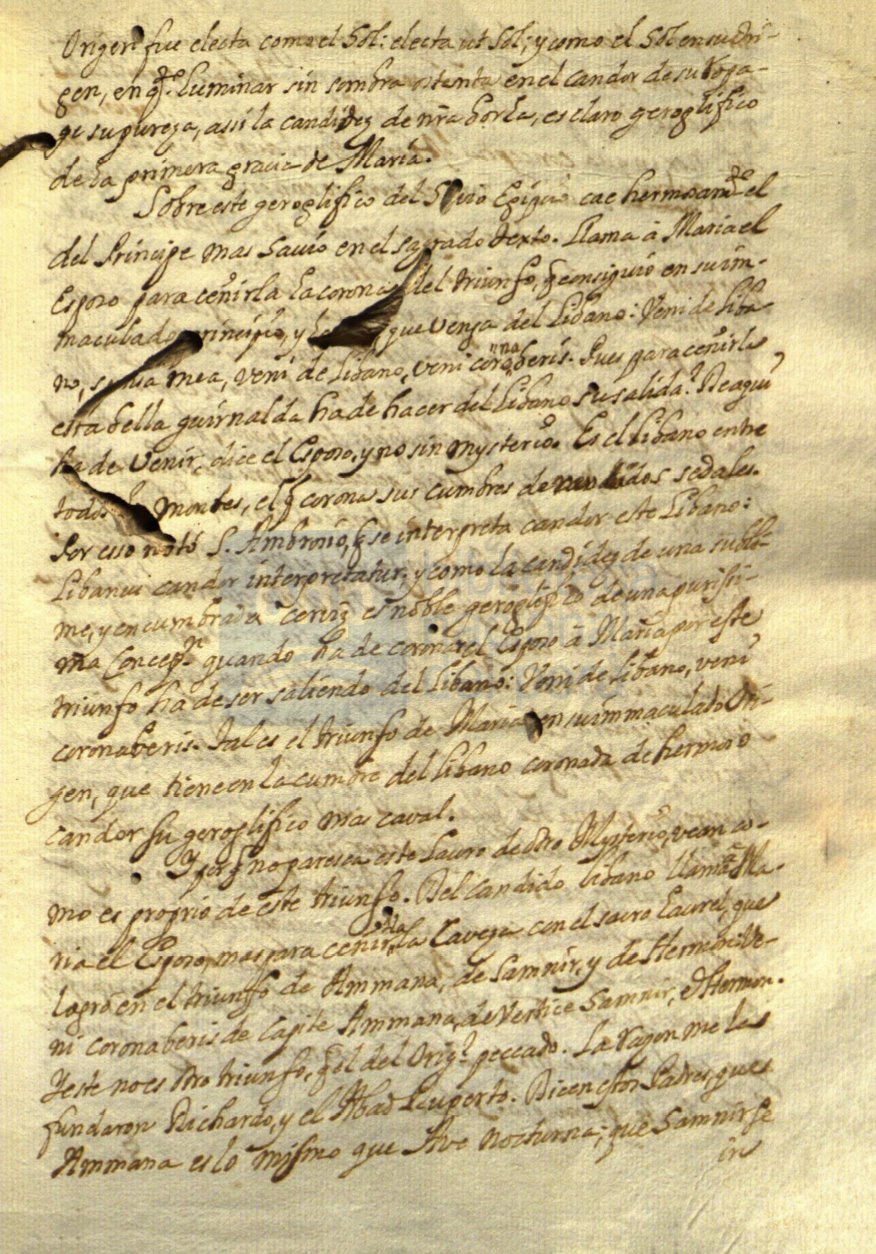 Origen fue electa como el Sol: electa ut Sol; y como el Sol en su Ori-
gen, en q.e Luminar sin sombra ostenta en el candor de su Ropa-
ge su pureza, assi la candidez de nra borla, es claro geroglifico
de la primera gracia de Maria.
Sobre este geroglifico del Savio Egipcio cae hermosam.te el
del Principe mas Savio en el sagrado texto. Llama à Maria el
Esposo para ceñirla la corona del triunfo, q consiguió en su im-
maculado principio, y que venga del Libano: Veni de Liba-
no, sponsa mea, veni de Libano, veni coronaberis. Pues para ceñirla
esta bella guirnalda ha de hacer del Libano su salida? De aqui
ha de venir, dice el Esposo, y no sin mysterio. Es el Libano entre
todos montes, el q corona sus cumbres de candidos sedales.
Por esso notó S. Ambrosio, q se interpreta candor este Libano:
Libanus candor interpretatur, y como la candidez de una subli-
me, y encumbrada cerviz es noble geroglifico de una purissi-
ma Concep.n quando ha de coronar el Esposo à Maria por este
triunfo ha de ser saliendo del Libano: Veni de Libano, veni
coronaberis. Tal es el triunfo de Maria en su immaculado Ori-
gen, que tiene en la cumbre del Libano coronada de hermoso
candor su geroglifico mas caval.
Y por q no paresca este Lauro de otro Mysterio, vean co-
mo es proprio de este triunfo. Del candido Libano llama à Ma-
ria el Esposo, mas para ceñirla la Caveza con el sacro Laurel, que
logró en el triunfo de Ammana, de Samnir, y de Hermon: Ve-
ni coronaberis de Capite Ammana, de Vertice Samnir, & Hermon.
Y este no es otro triunfo, q el del Orig.l peccado. La razon me la
fundaron Richardo, y el Abad Ruperto. Dicen estos Padres, que
Ammana es lo mismo que Ave nocturna; que Samnir se
in